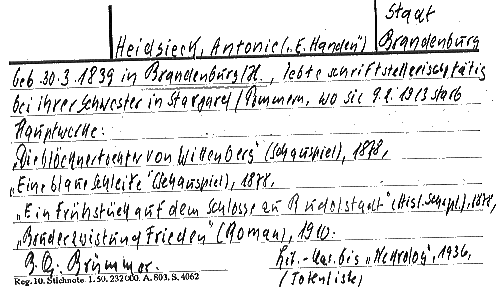 Stadt
Heidsieck, Antonie („E. Handen") Brandenburg
geb. 30.3.1839 in Brandenburg/H., lebte schriftstellerisch tätig
bei ihrer Schwester in Stargard/Pommern, wo sie 9.2.1913 starb
Hauptwerke:
„Die Glöcknertochter von Wittenberg" (Schauspiel), 1878,
„Eine blaue Schleife" (Schauspiel), 1878,
„Ein Frühstück auf dem Schlosse zu Rudolstadt" (Hist. Schspl.), 1878,
„Bruderzwist und Frieden" (Roman), 1910.
Brümmer. Lit.-Kal. bis „Nekrolog", 1936,
(Totenliste)
Reg. 10. Stichnote. L. 50. 232000. A. 803. S. 4062